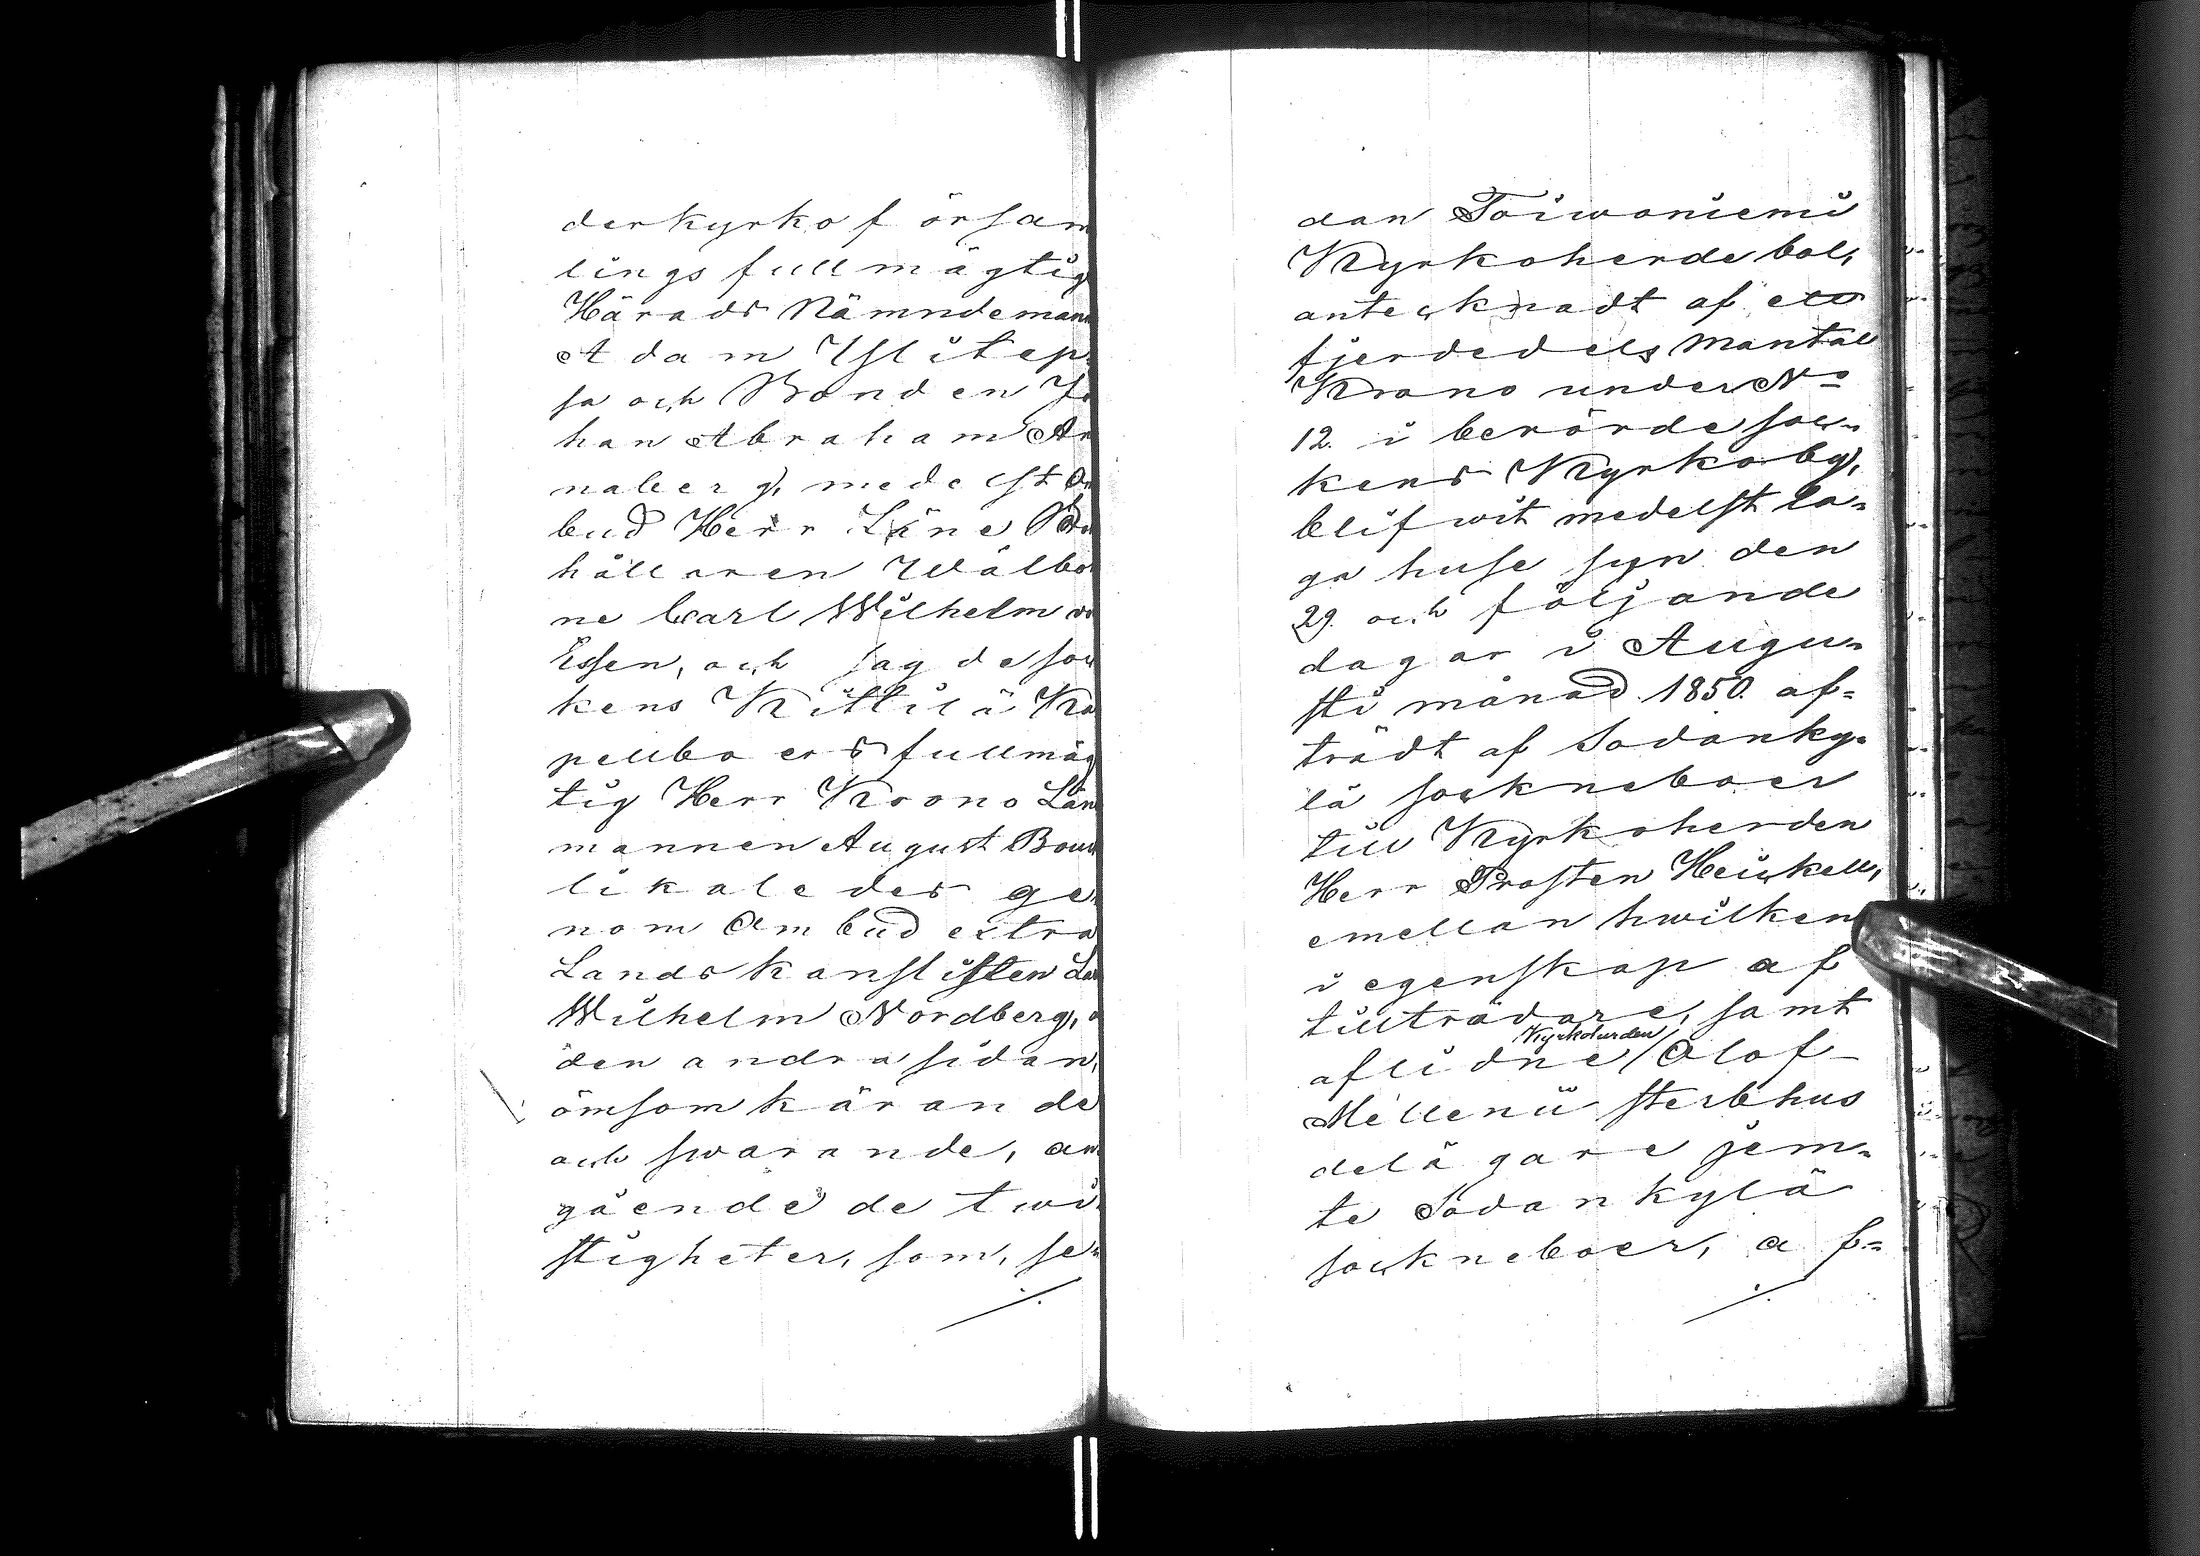 derkyrkoförsam
lings fullmägtig
Härads Nämndeman
Adam Yliteps
sa och Bonden Jo
han Abraham An
naberg, medelst Om
bud Herr Läne Bok
hållaren Wälbor
ne Carl Wilhelm vo
Essen, och jag de soc
kens Kittilä Ka
pellboers fullmäg
tig Herr Krono Läns
mannen August Boue
likaledes ge
nom Ombud extra
Lands kanslisten La
Wilhelm Nordberg, å
den andra sidan,
ömsom kärande
och swarande, an
gående de twi
stigheter, som, se-
dan Toiwoniemi
Kyrkoherdebol,
antecknadt af ett
fjerdedels Mantal
Krono under No
12. i berörde soc=
kens Kyrkoby,
blifwit medelst la=
ga huse syn den
29. och följande
dagar i Augu=
sti månad 1850. af=
trädt af Sodanky=
lä sockneboer
till Kyrkoherden
Herr Prosten Heickell,
emellan hwilken
i egenskap af
tillträdare, samt
Kyrkoherden
aflidne / Olof
Mellenii sterbhus
delägare jem=
te Sodankylä
sockneboer, af=